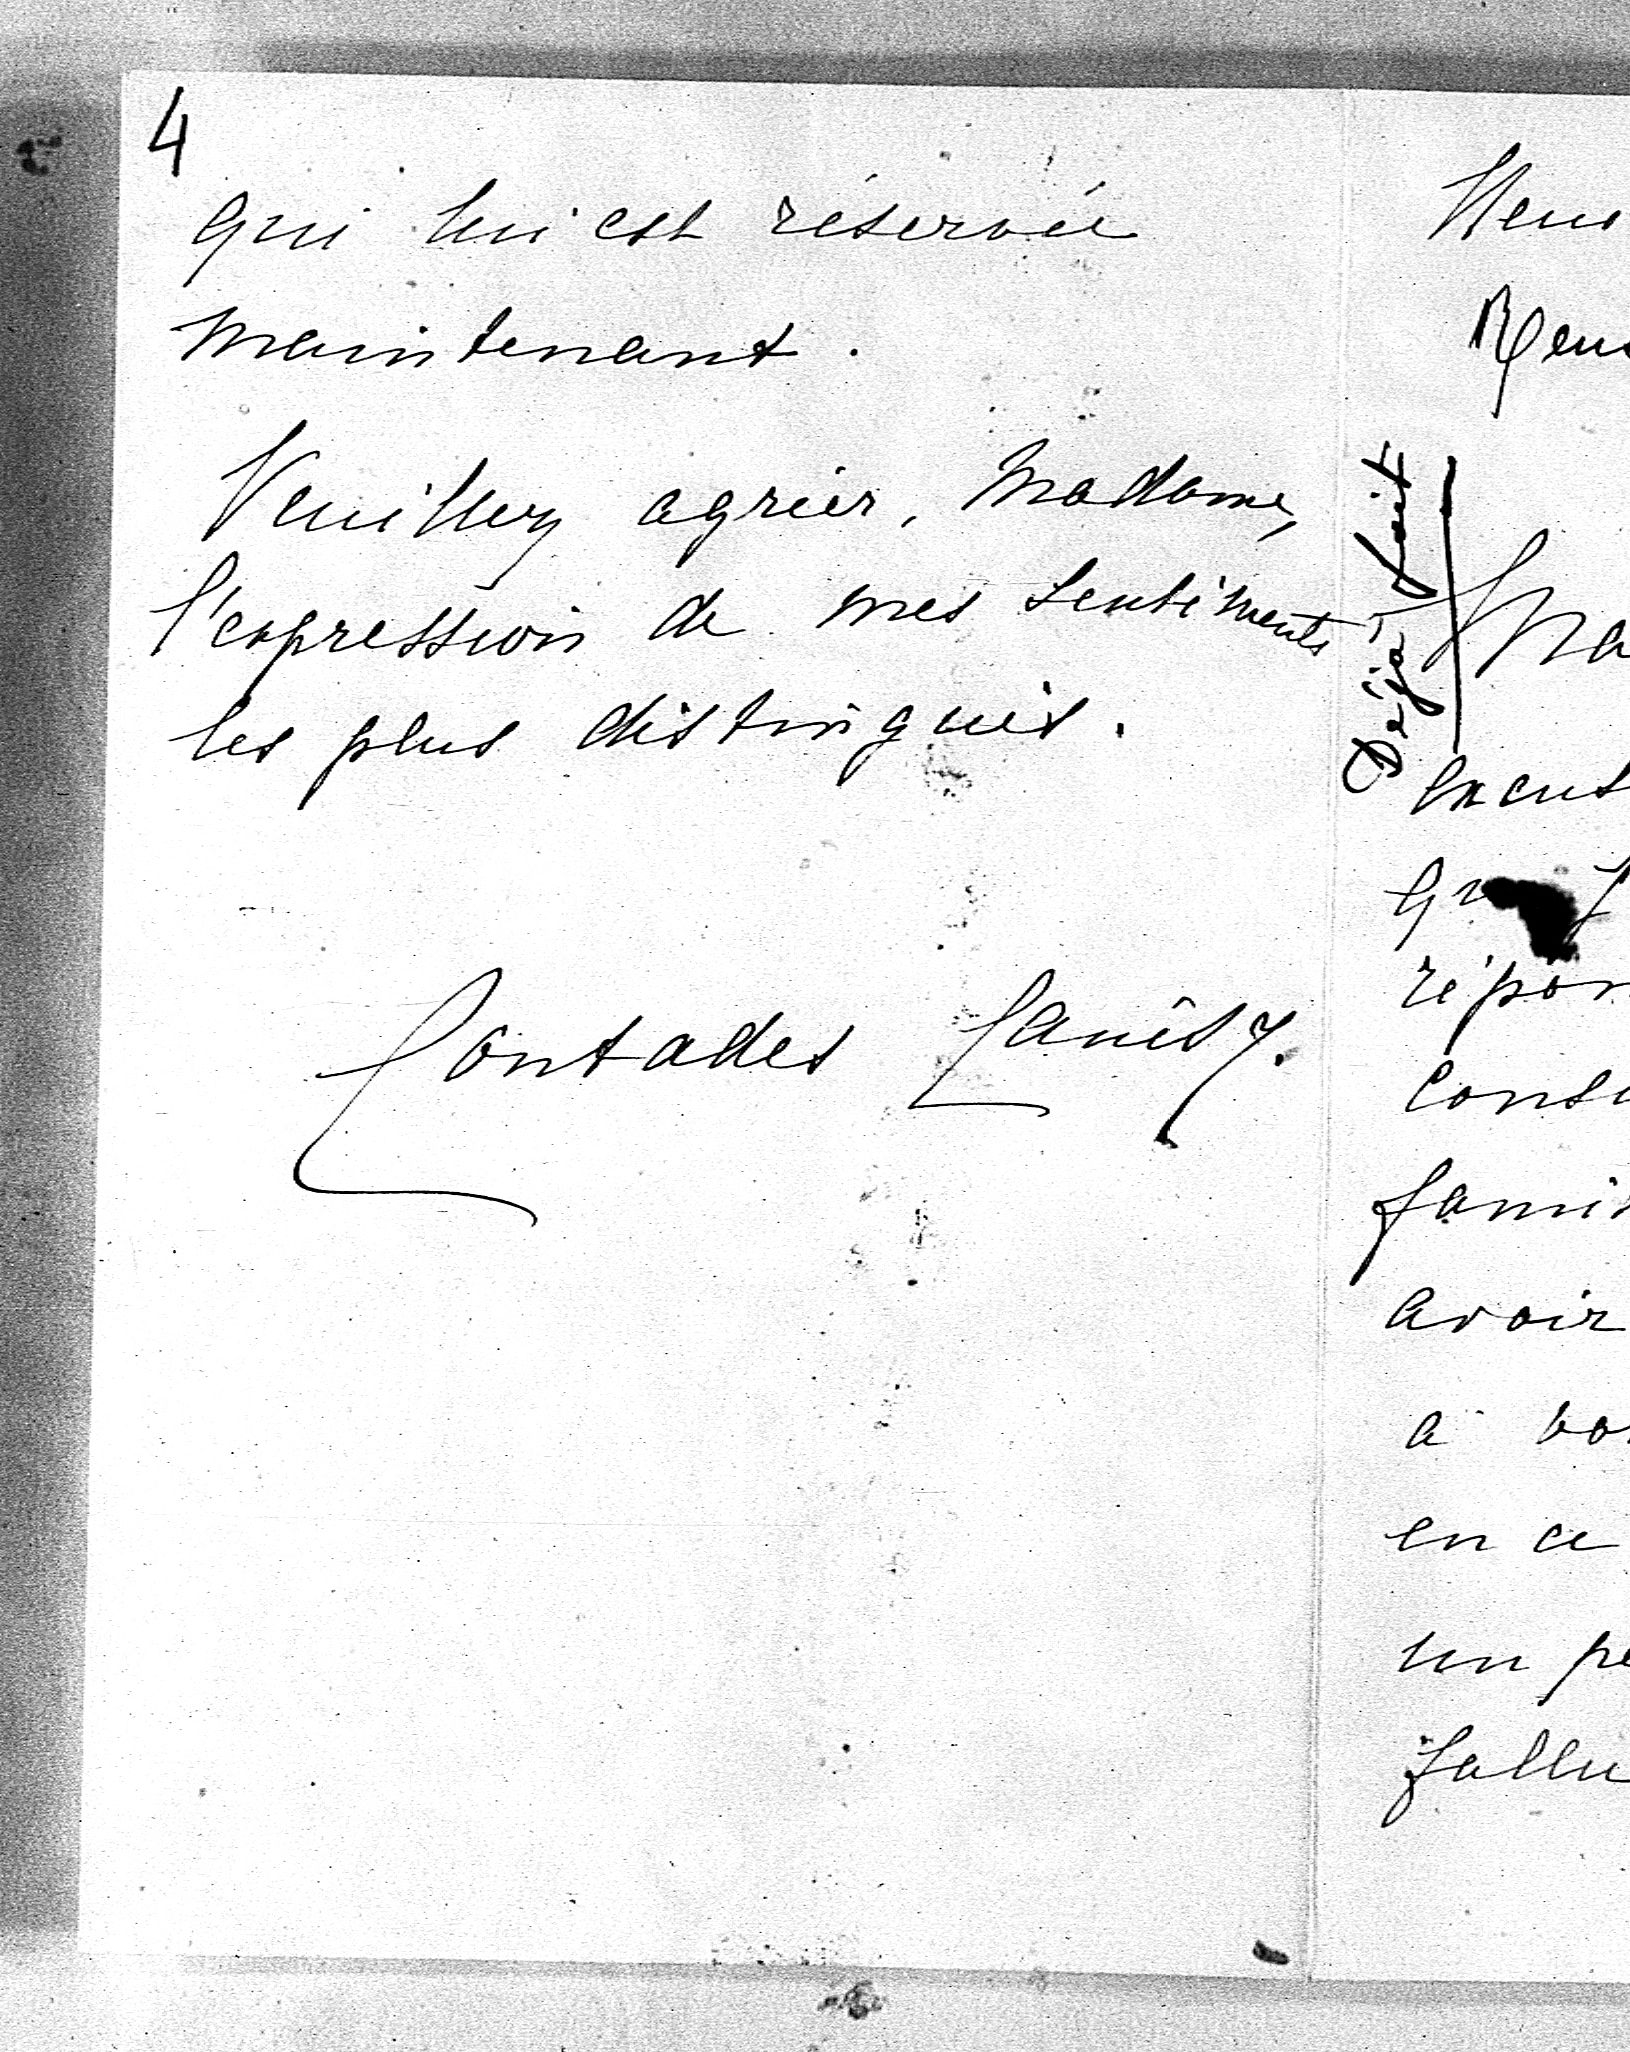 4
qui lui est réservée
maintenant.
Veuillez agréer, Madame,
l'expression de mes sentiments
les plus distingués.
Contades
Déjà fait
Ma
excus
répon
cons
famil
avoir
a vo
en ce
un pe
fallu